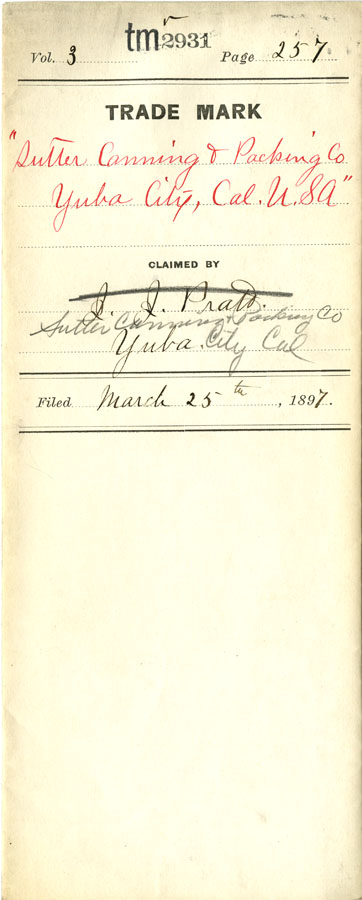 tm 2931
Vol. 3 Page 257
TRADE MARK
"Sutter Canning & Packing Co
Yuba City, Cal. U.S.A"
CLAIMED BY
J. J. Pratt.
Sutter Canning & Packing Co
Yuba City Cal
Filed March 25th, 1897.